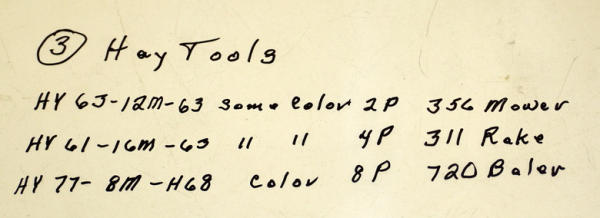 ③ Hay Tools
HY 65-12M-63 some color 2P 356 Mower
HY 61-16M-63 " " 4P 311 Rake
HY 77-8M-H68 color 8P 720 Baler